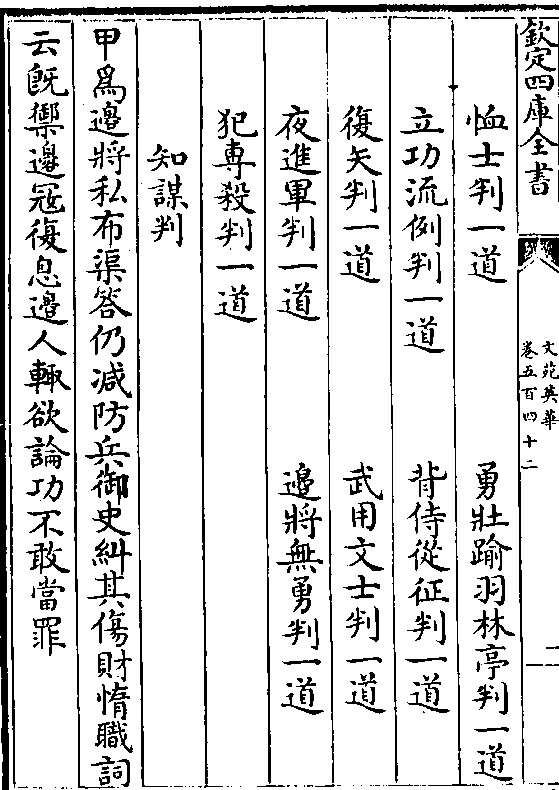 欽定四庫全書
文苑英華
卷五百四十二
恤士判一道
勇壯踰羽林亭判一道
立功流例判一道
背侍從征判一道
復矢判一道
武用文士判一道
夜進軍判一道
邉將無勇判一道
犯專殺判一道
知謀判
甲爲邉將私布渠答仍减防兵御史糾其傷財惰職詞
云旣禦邉冦復息邉人輙欲論功不敢當罪